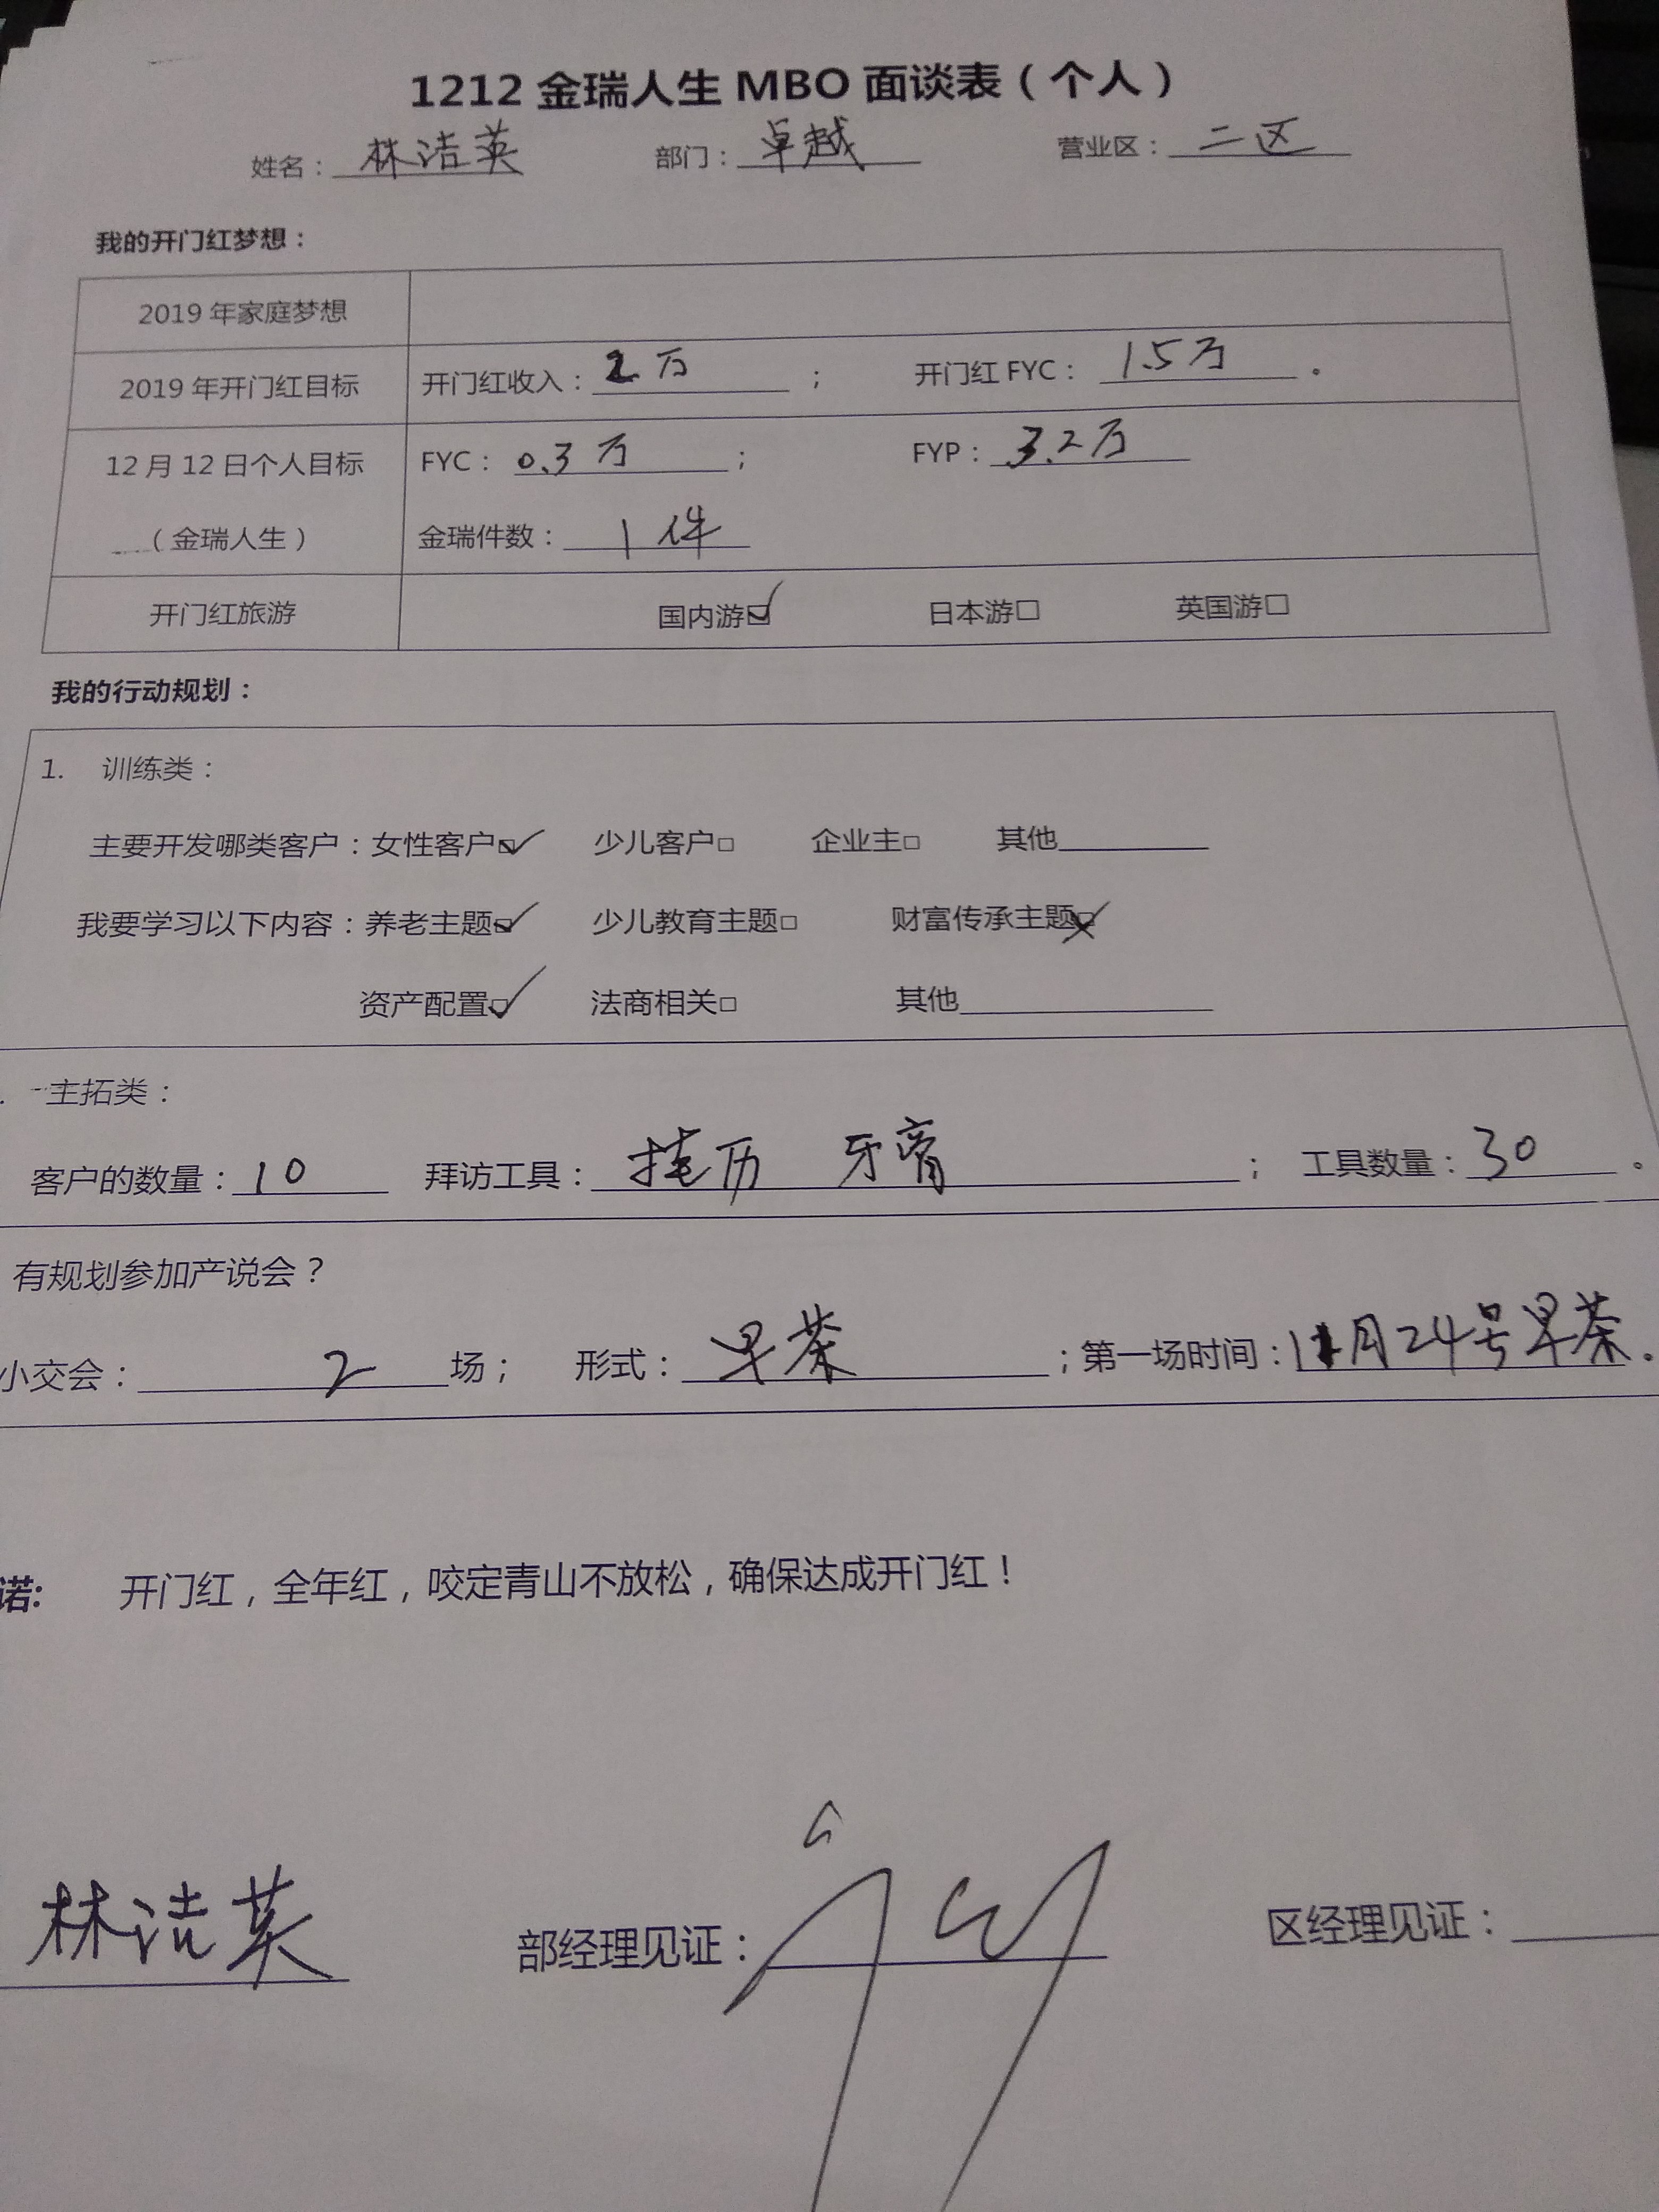 1212 金瑞人生 MBO 面谈表（个人）
姓名：林洁英 部门：卓越 营业区：二区
我的开门红梦想：
2019 年家庭梦想
2019 年开门红目标 开门红收入：2万； 开门红 FYC：1.5万。
12 月 12 日个人目标 FYC：0.3万； FYP：3.2万
（金瑞人生） 金瑞件数：1件
开门红旅游 国内游☑ 日本游□ 英国游□
我的行动规划：
1. 训练类：
主要开发哪类客户：女性客户☑ 少儿客户□ 企业主□ 其他
我要学习以下内容：养老主题☑ 少儿教育主题□ 财富传承主题☒
资产配置☑ 法商相关□ 其他
主拓类：
客户的数量：10 拜访工具：挂历 牙膏； 工具数量：30。
有规划参加产说会？
小交会：2场； 形式：早茶；第一场时间：11月24号早茶。
诺: 开门红，全年红，咬定青山不放松，确保达成开门红！
林洁英 部经理见证： 区经理见证：